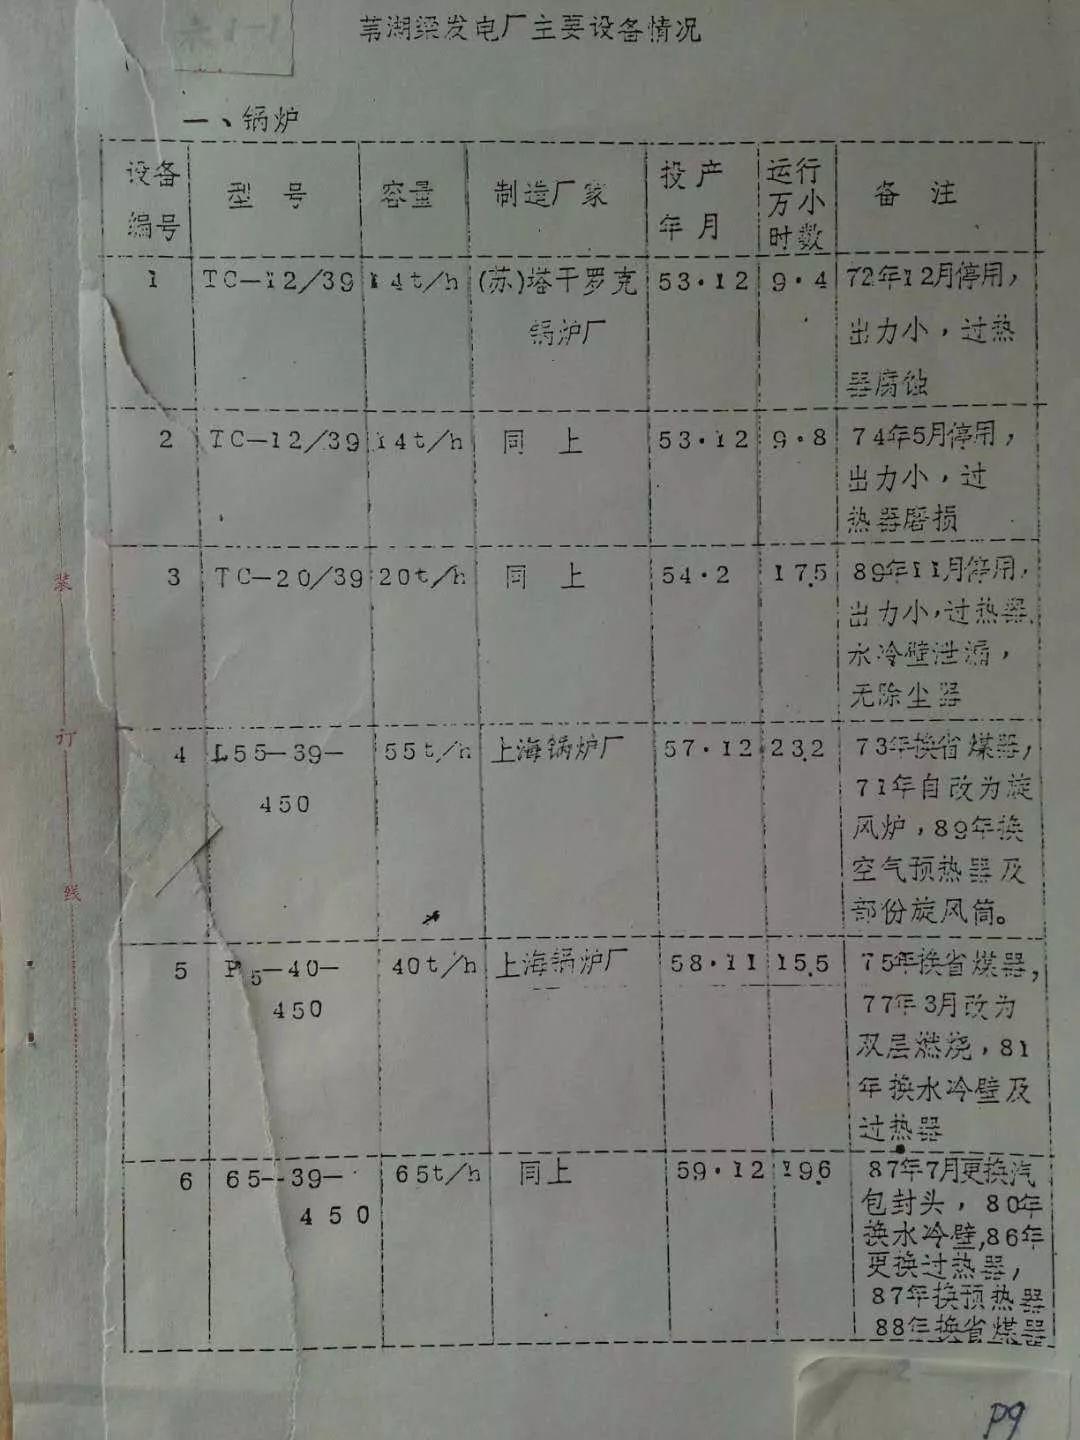 苇湖梁发电厂主要设备情况
一、锅炉
设备编号 型号 容量 制造厂家 投产年月 运行万小时数 备注
1 TC—12/39 14t/h (苏)塔干罗克 53·12 9·4 72年12月停用，
锅炉厂 出力小，过热
器腐蚀
2 TC—12/39 14t/h 同上 53·12 9·8 74年5月停用，
出力小，过
热器磨损
3 TC—20/39 20t/h 同上 54·2 17.5 89年11月停用，
出力小，过热器、
水冷壁泄漏，
无除尘器
4 L55—39— 55t/h 上海锅炉厂 57·12 23.2 73年换省煤器，
450 71年自改为旋
风炉，89年换
空气预热器及
部份旋风筒。
5 P5—40— 40t/h 上海锅炉厂 58·11 15.5 75年换省煤器，
450 77年3月改为
双层燃烧，81
年换水冷壁及
过热器
6 65—39— 65t/h 同上 59·12 19.6 87年7月更换汽
450 包封头，80年
换水冷壁,86年
更换过热器，
87年换预热器
88年换省煤器
装
订
线
P9